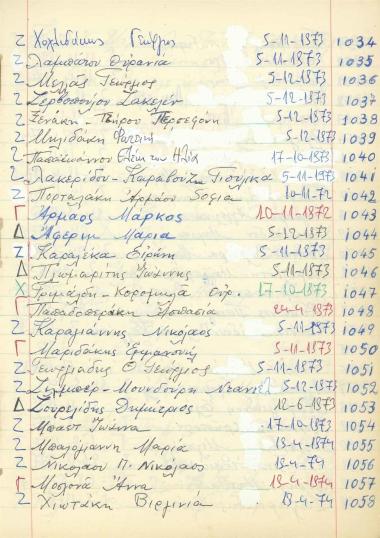 Ζ Χοχλιδάκης Γεώργιος 5-11-1973 1034
Ζ Λαμπάτου Ουρανία 5-11-1973 1035
Ζ Μελάς Γεώργιος 5-12-1973 1036
Ζ 5-12-1973 1037
Ζ Ξενάκη - Σπύρου Περσεφόνη 5-12-1973 1038
Ζ Μηλιδάκη Φωτεινή 5-12-1973 1039
Ζ Παπαϊωάννου Ελένη του Ηλία 17-10-1973 1040
Ζ Λακερίδου - Καραβούζη Γιούλικα 5-11-1973 1041
Ζ Πορταλάκη Αρμάου Σοφία 10-11-72 1042
Γ Άρμαος Μάρκος 10-11-1972 1043
Δ Αφέρη Μαρία 5-12-1973 1044
Ζ Καραλέκα Ειρήνη 5-11-1973 1045
Δ Πλωμαρίτης Ιωάννης 5-11-1973 1046
Χ Γριμάλδη - Κορομηλά 17-10-1973 1047
Γ 24-4-1973 1048
Ζ Καραγιάννης Νικόλαος 5-11-1973 1049
Γ Μαριδάκης Εμμανουήλ 5-11-1973 1050
Ζ Γεωργιάδης Θ Γεώργιος 5-11-1973 1051
Ζ Μουνδούρη 5-12-1973 1052
Δ Σουρελίδης Δημήτριος 12-6-1973 1053
Ζ Μπαστ Ιωάννα 17-10-1973 1054
Ζ Μπαλόγιαννη Μαρία 18-4-1974 1055
Ζ Νικολάου Π. Νικόλαος 18-4-74 1056
Γ Μοσχονά Άννα 18-4-1974 1057
Ζ Χιωτάκη Βιργινία 18-4-74 1058